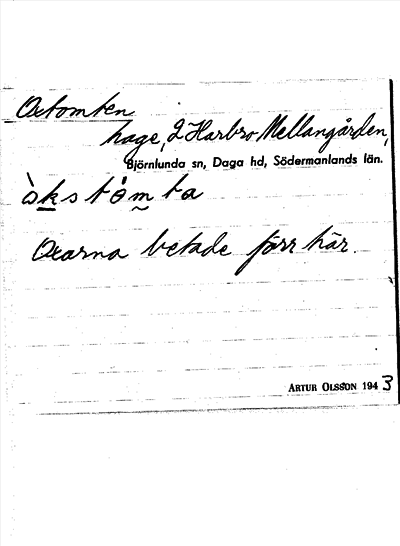 Oxtomten
hage, 2 Harbro Mellangården,
Björnlunda sn, Daga hd, Södermanlands län.
òkstómta
Oxarna betade förr här.
ARTUR OLSSON 1943